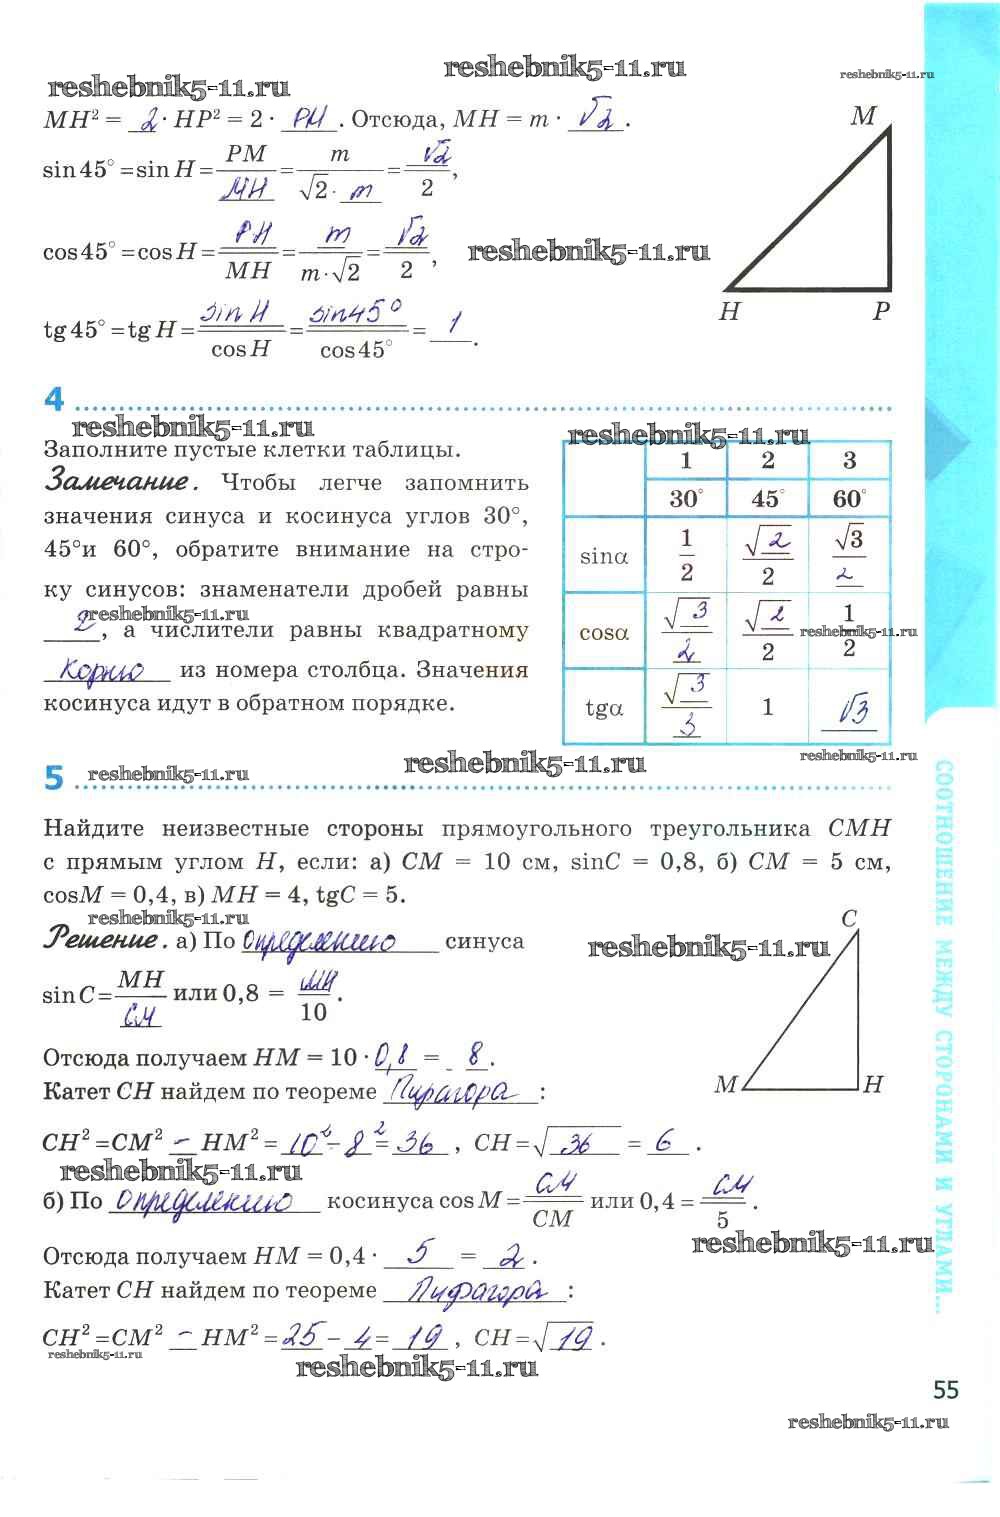 reshebnik5-11.ru
reshebnik5-11.ru
reshebnik5-11.ru
MH² = 2 · HP² = 2 · PH. Отсюда, MH = m · √2.
sin 45° = sin H = PM/MH = m/(√2 · m) = √2/2,
cos 45° = cos H = PH/MH = m/(m·√2) = √2/2,
reshebnik5-11.ru
tg 45° = tg H = sin H/cos H = sin 45°/cos 45° = 1.
M
H P
4
reshebnik5-11.ru
Заполните пустые клетки таблицы.
Замечание. Чтобы легче запомнить
значения синуса и косинуса углов 30°,
45°и 60°, обратите внимание на стро-
ку синусов: знаменатели дробей равны
reshebnik5-11.ru
2, а числители равны квадратному
корню из номера столбца. Значения
косинуса идут в обратном порядке.
reshebnik5-11.ru
1 2 3
30° 45° 60°
sinα 1/2 √2/2 √3/2
cosα √3/2 √2/2 1/2
reshebnik5-11.ru
tgα √3/3 1 √3
reshebnik5-11.ru
5
reshebnik5-11.ru
reshebnik5-11.ru
Найдите неизвестные стороны прямоугольного треугольника CMH
с прямым углом H, если: а) CM = 10 см, sinC = 0,8, б) CM = 5 см,
cosM = 0,4, в) MH = 4, tgC = 5.
reshebnik5-11.ru
Решение. а) По определению синуса
reshebnik5-11.ru
sin C = MH/CM или 0,8 = MH/10.
Отсюда получаем HM = 10 · 0,8 = 8.
Катет CH найдем по теореме Пифагора:
C
M H
CH² = CM² − HM² = 10² − 8² = 36, CH = √36 = 6.
reshebnik5-11.ru
б) По определению косинуса cos M = CM/CM или 0,4 = CM/5.
reshebnik5-11.ru
Отсюда получаем HM = 0,4 · 5 = 2.
Катет CH найдем по теореме Пифагора:
CH² = CM² − HM² = 25 − 4 = 19, CH = √19.
reshebnik5-11.ru
reshebnik5-11.ru
СООТНОШЕНИЕ МЕЖДУ СТОРОНАМИ И УГЛАМИ...
55
reshebnik5-11.ru